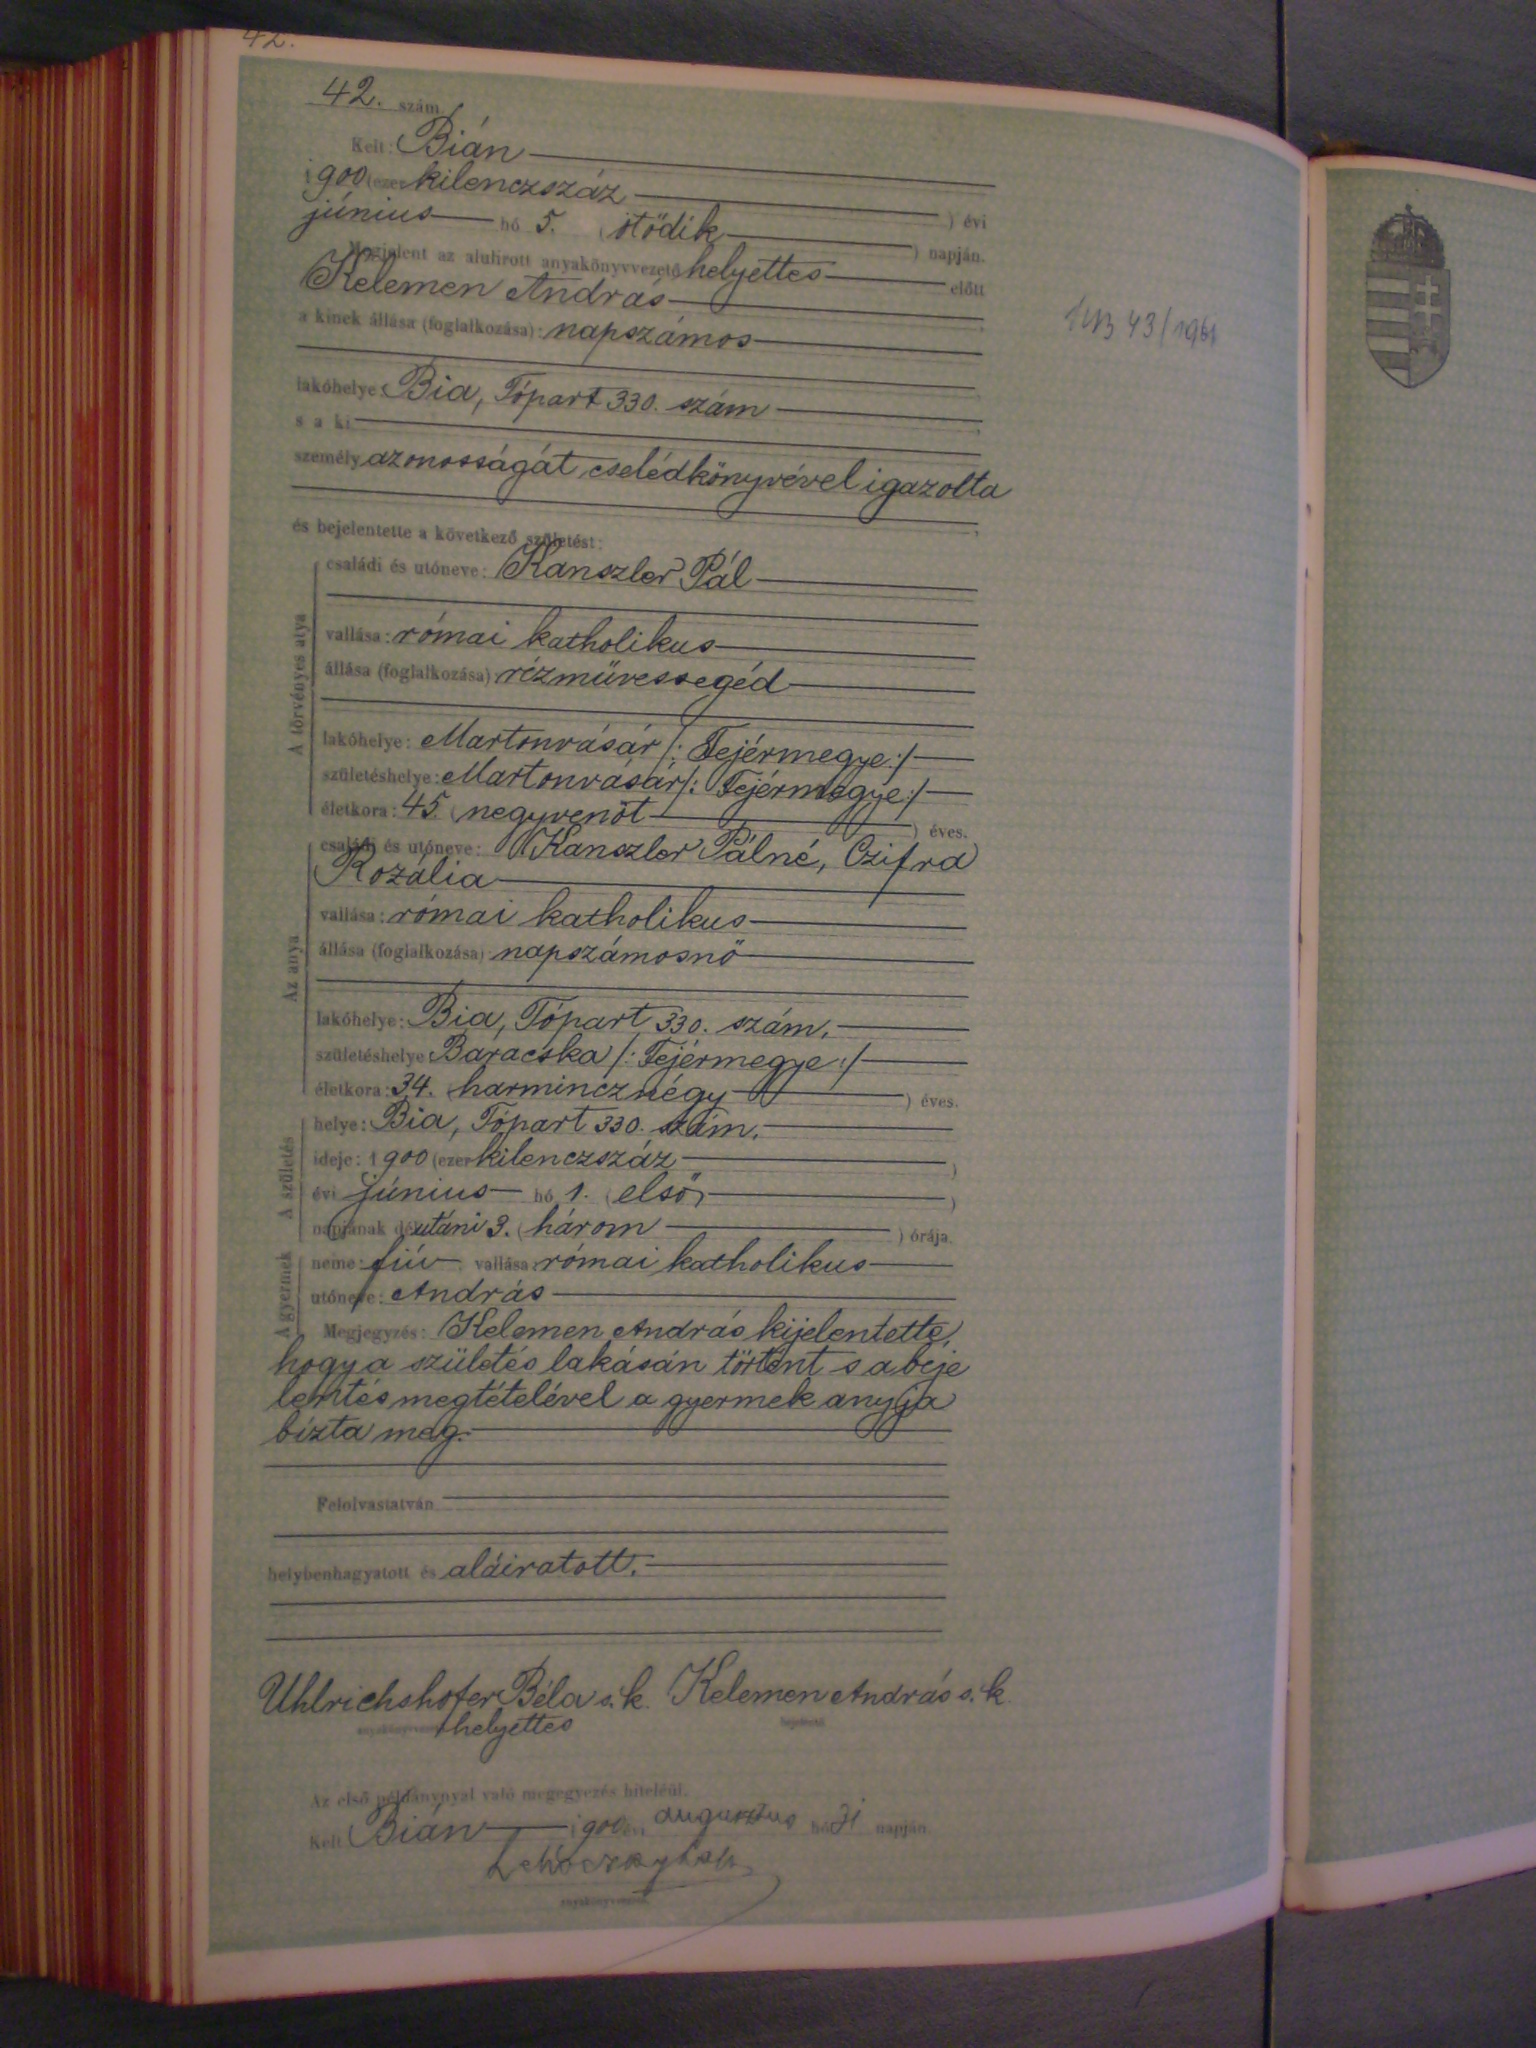 42.
42. szám
Kelt: Bián
1900 (ezer kilenczszáz ) évi
június hó 5. (ötödik ) napján.
Megjelent az alulirott anyakönyvvezető helyettes előtt
Kelemen András
a kinek állása (foglalkozása): napszámos
lakóhelye: Bia, Tópart 330. szám
s a ki
személy azonosságát cselédkönyvével igazolta
és bejelentette a következő születést:
A törvényes atya
családi és utóneve: Kanszler Pál
vallása: római katholikus
állása (foglalkozása): rézművessegéd
lakóhelye: Martonvásár /: Fejérmegye :/
születéshelye: Martonvásár /: Fejérmegye :/
életkora: 45. (negyvenöt ) éves.
Az anya
családi és utóneve: Kanszler Pálné, Czifra
Rozália
vallása: római katholikus
állása (foglalkozása): napszámosnő
lakóhelye: Bia, Tópart 330. szám.
születéshelye: Baracska /: Fejérmegye :/
életkora: 34. (harmincznégy ) éves.
A születés
helye: Bia, Tópart 330. szám.
ideje: 1900 (ezer kilenczszáz )
évi június hó 1. (első )
napjának délutáni 3. (három ) órája.
A gyermek
neme: fiú vallása: római katholikus
utóneve: András
Megjegyzés: Kelemen András kijelentette,
hogy a születés lakásán történt s a beje
lentés megtételével a gyermek anyja
bízta meg.
Felolvastatván
helybenhagyatott és aláiratott.
Uhlrichshofer Béla s. k. Kelemen András s. k.
anyakönyvvezető helyettes bejelentő
Az első példánynyal való megegyezés hiteléül.
Kelt Bián 1900 évi augusztus hó 31 napján.
anyakönyvvezető
43/1961